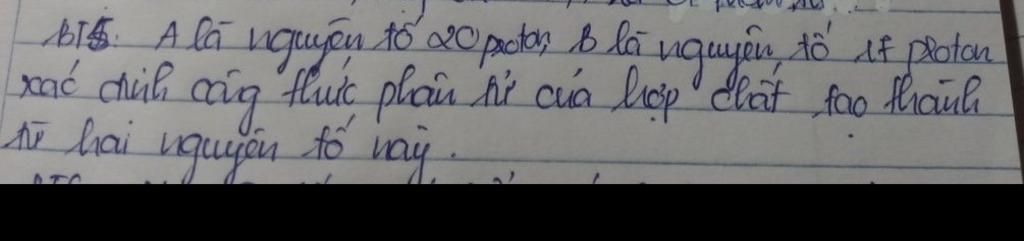 BT5: A là nguyên tố 20 proton, B là nguyên tố 17 proton
xác định công thức phân tử của hợp chất tạo thành
từ hai nguyên tố này.